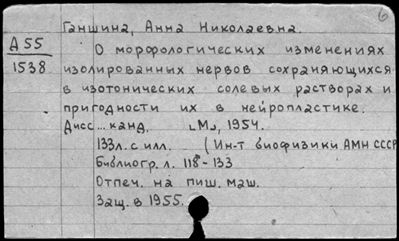 6
Ганшина, Анна Николаевна.
А 55
1538
О морфологических изменениях
изолированных нервов сохраняющихся
в изотонических солевых растворах и
пригодности их в нейропластике.
Дисс... канд. [М.], 1954.
133л. с илл. (Ин-т биофизики АМН СССР
Библиогр. л. 118-133
Отпеч. на пиш. маш.
Защ. в 1955.